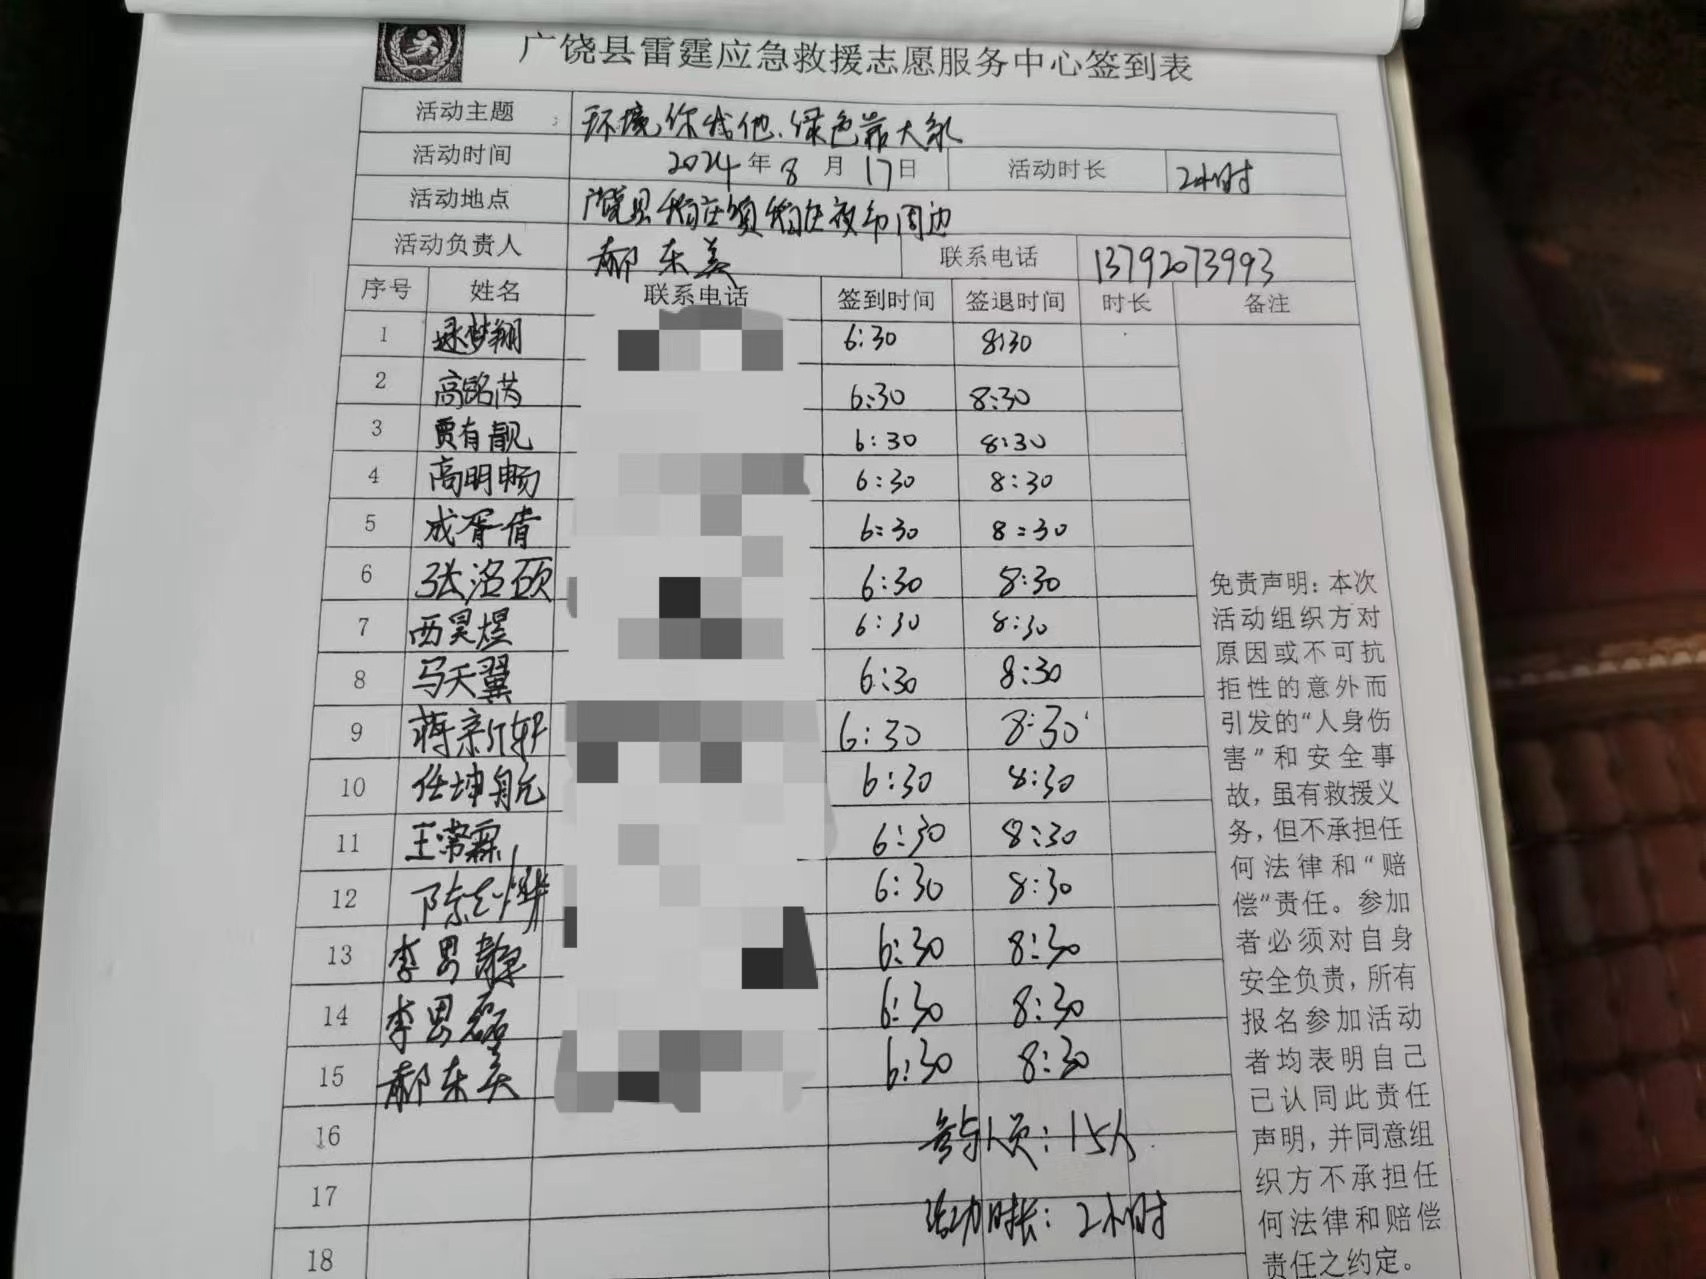 广饶县雷霆应急救援志愿服务中心签到表
活动主题 环境,你我他,绿色靠大家
活动时间 2024年8月17日 活动时长 2小时
活动地点 广饶县稻庄镇稻庄夜市周边
活动负责人 郝东美 联系电话 13792073993
序号 姓名 联系电话 签到时间 签退时间 时长 备注
1 梦翔 6:30 8:30
2 高铭芮 6:30 8:30
3 贾有靓 6:30 8:30
4 高明畅 6:30 8:30
5 成胥倩 6:30 8:30
6 张洛硕 6:30 8:30
7 西昊煜 6:30 8:30
8 马天翼 6:30 8:30
9 蒋亲轩 6:30 8:30
10 任坤航 6:30 8:30
11 王常霖 6:30 8:30
12 陈志烨 6:30 8:30
13 李男静 6:30 8:30
14 李男磊 6:30 8:30
15 郝东美 6:30 8:30
16 参与人员:15人
17 活动时长:2小时
18
免责声明:本次
活动组织方对
原因或不可抗
拒性的意外而
引发的“人身伤
害”和安全事
故,虽有救援义
务,但不承担任
何法律和“赔
偿”责任。参加
者必须对自身
安全负责,所有
报名参加活动
者均表明自己
已认同此责任
声明,并同意组
织方不承担任
何法律和赔偿
责任之约定。